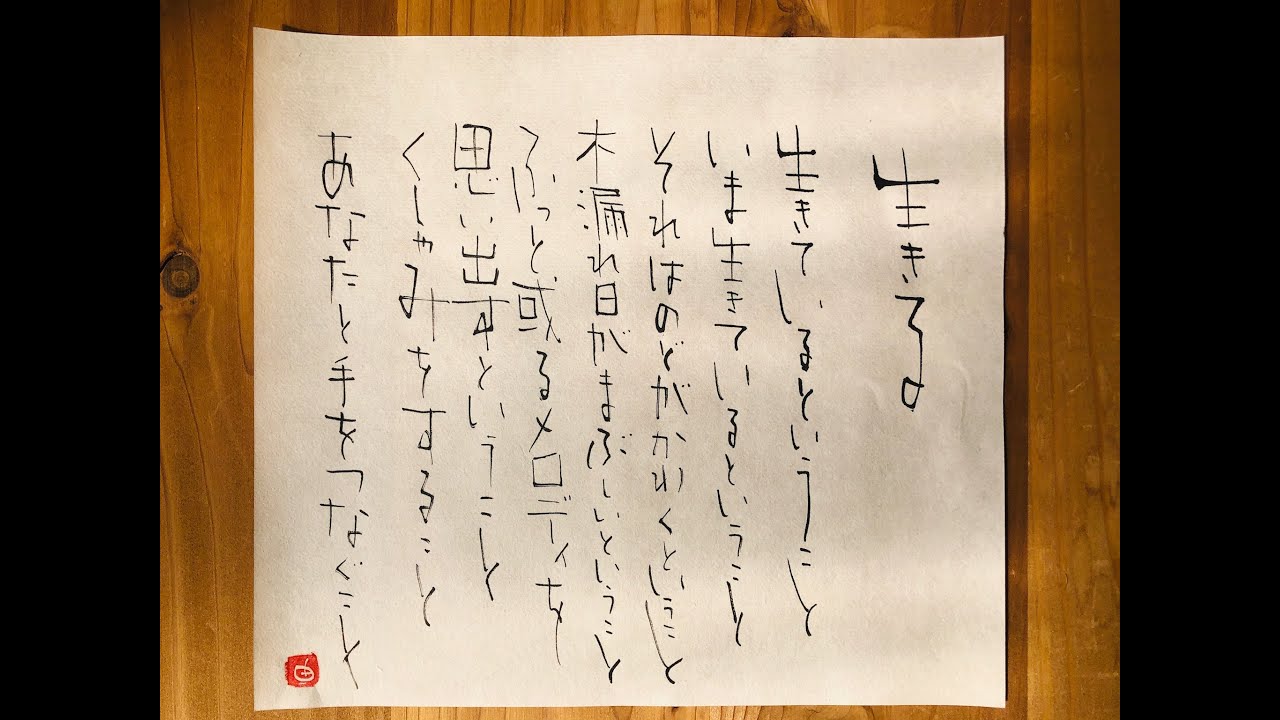 生きる
生きているということ
いま生きているということ
それはのどがかわくということ
木漏れ日がまぶしいということ
ふっと或るメロディを
思い出すということ
くしゃみをすること
あなたと手をつなぐこと